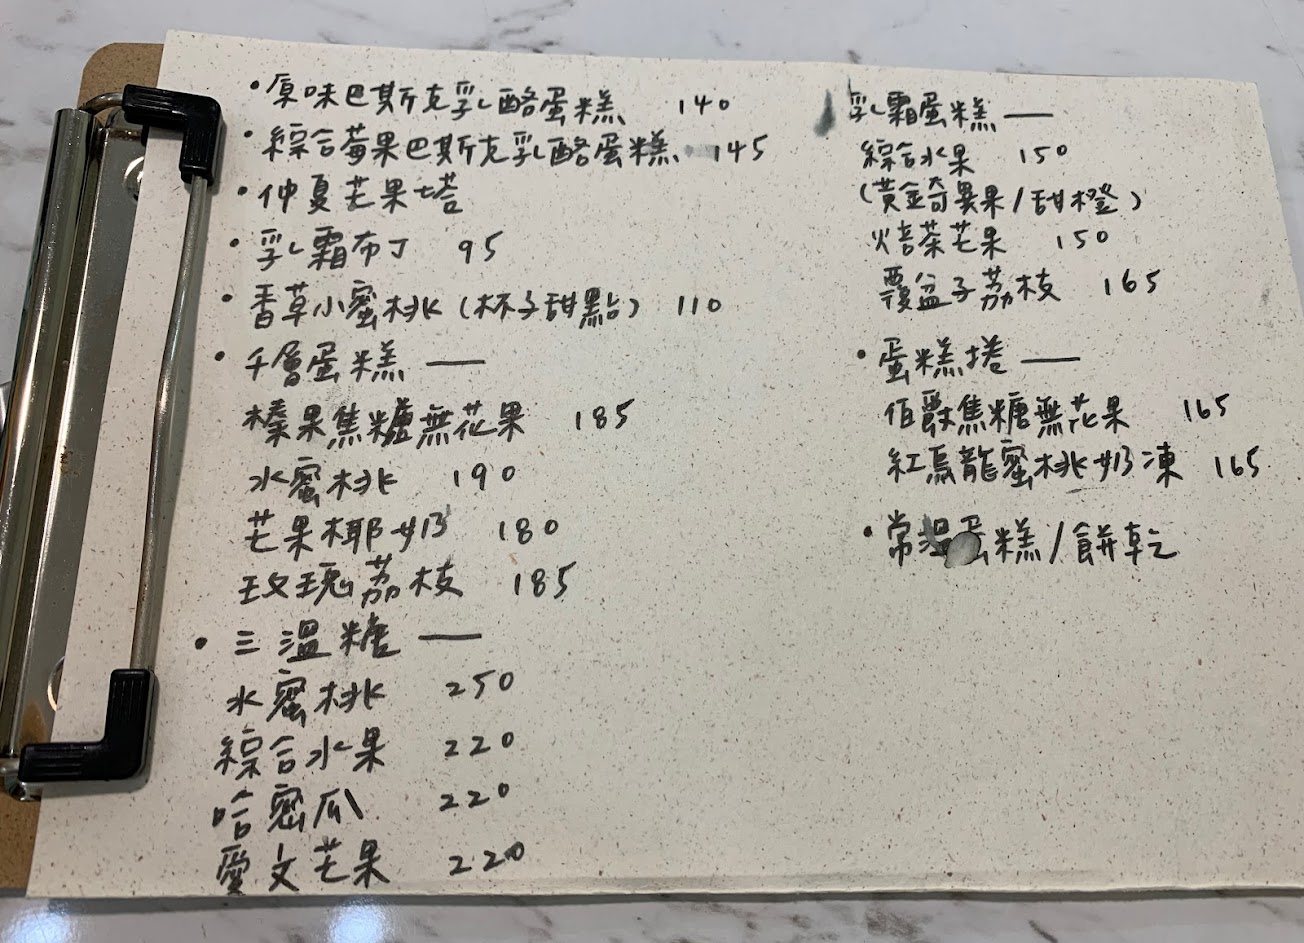 •原味巴斯克乳酪蛋糕 140
•綜合莓果巴斯克乳酪蛋糕 145
•仲夏芒果塔
•乳霜布丁 95
•香草小蜜桃(杯子甜點) 110
•千層蛋糕 —
榛果焦糖無花果 185
水蜜桃 190
芒果椰奶 180
玫瑰荔枝 185
•三溫糖 —
水蜜桃 250
綜合水果 220
哈密瓜 220
愛文芒果 220
乳霜蛋糕 —
綜合水果 150
(黃金奇異果/甜橙)
焙茶芒果 150
覆盆子荔枝 165
•蛋糕捲 —
伯爵焦糖無花果 165
紅烏龍蜜桃奶凍 165
•常溫蛋糕/餅乾